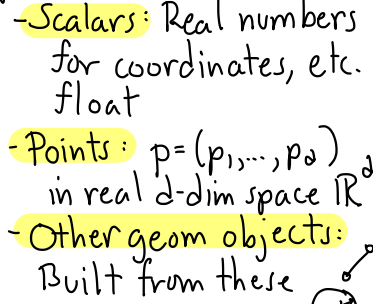 - Scalars: Real numbers
for coordinates, etc.
float
- Points: p=(p₁,...,p_d)
in real d-dim space ℝᵈ
- Other geom objects:
Built from these